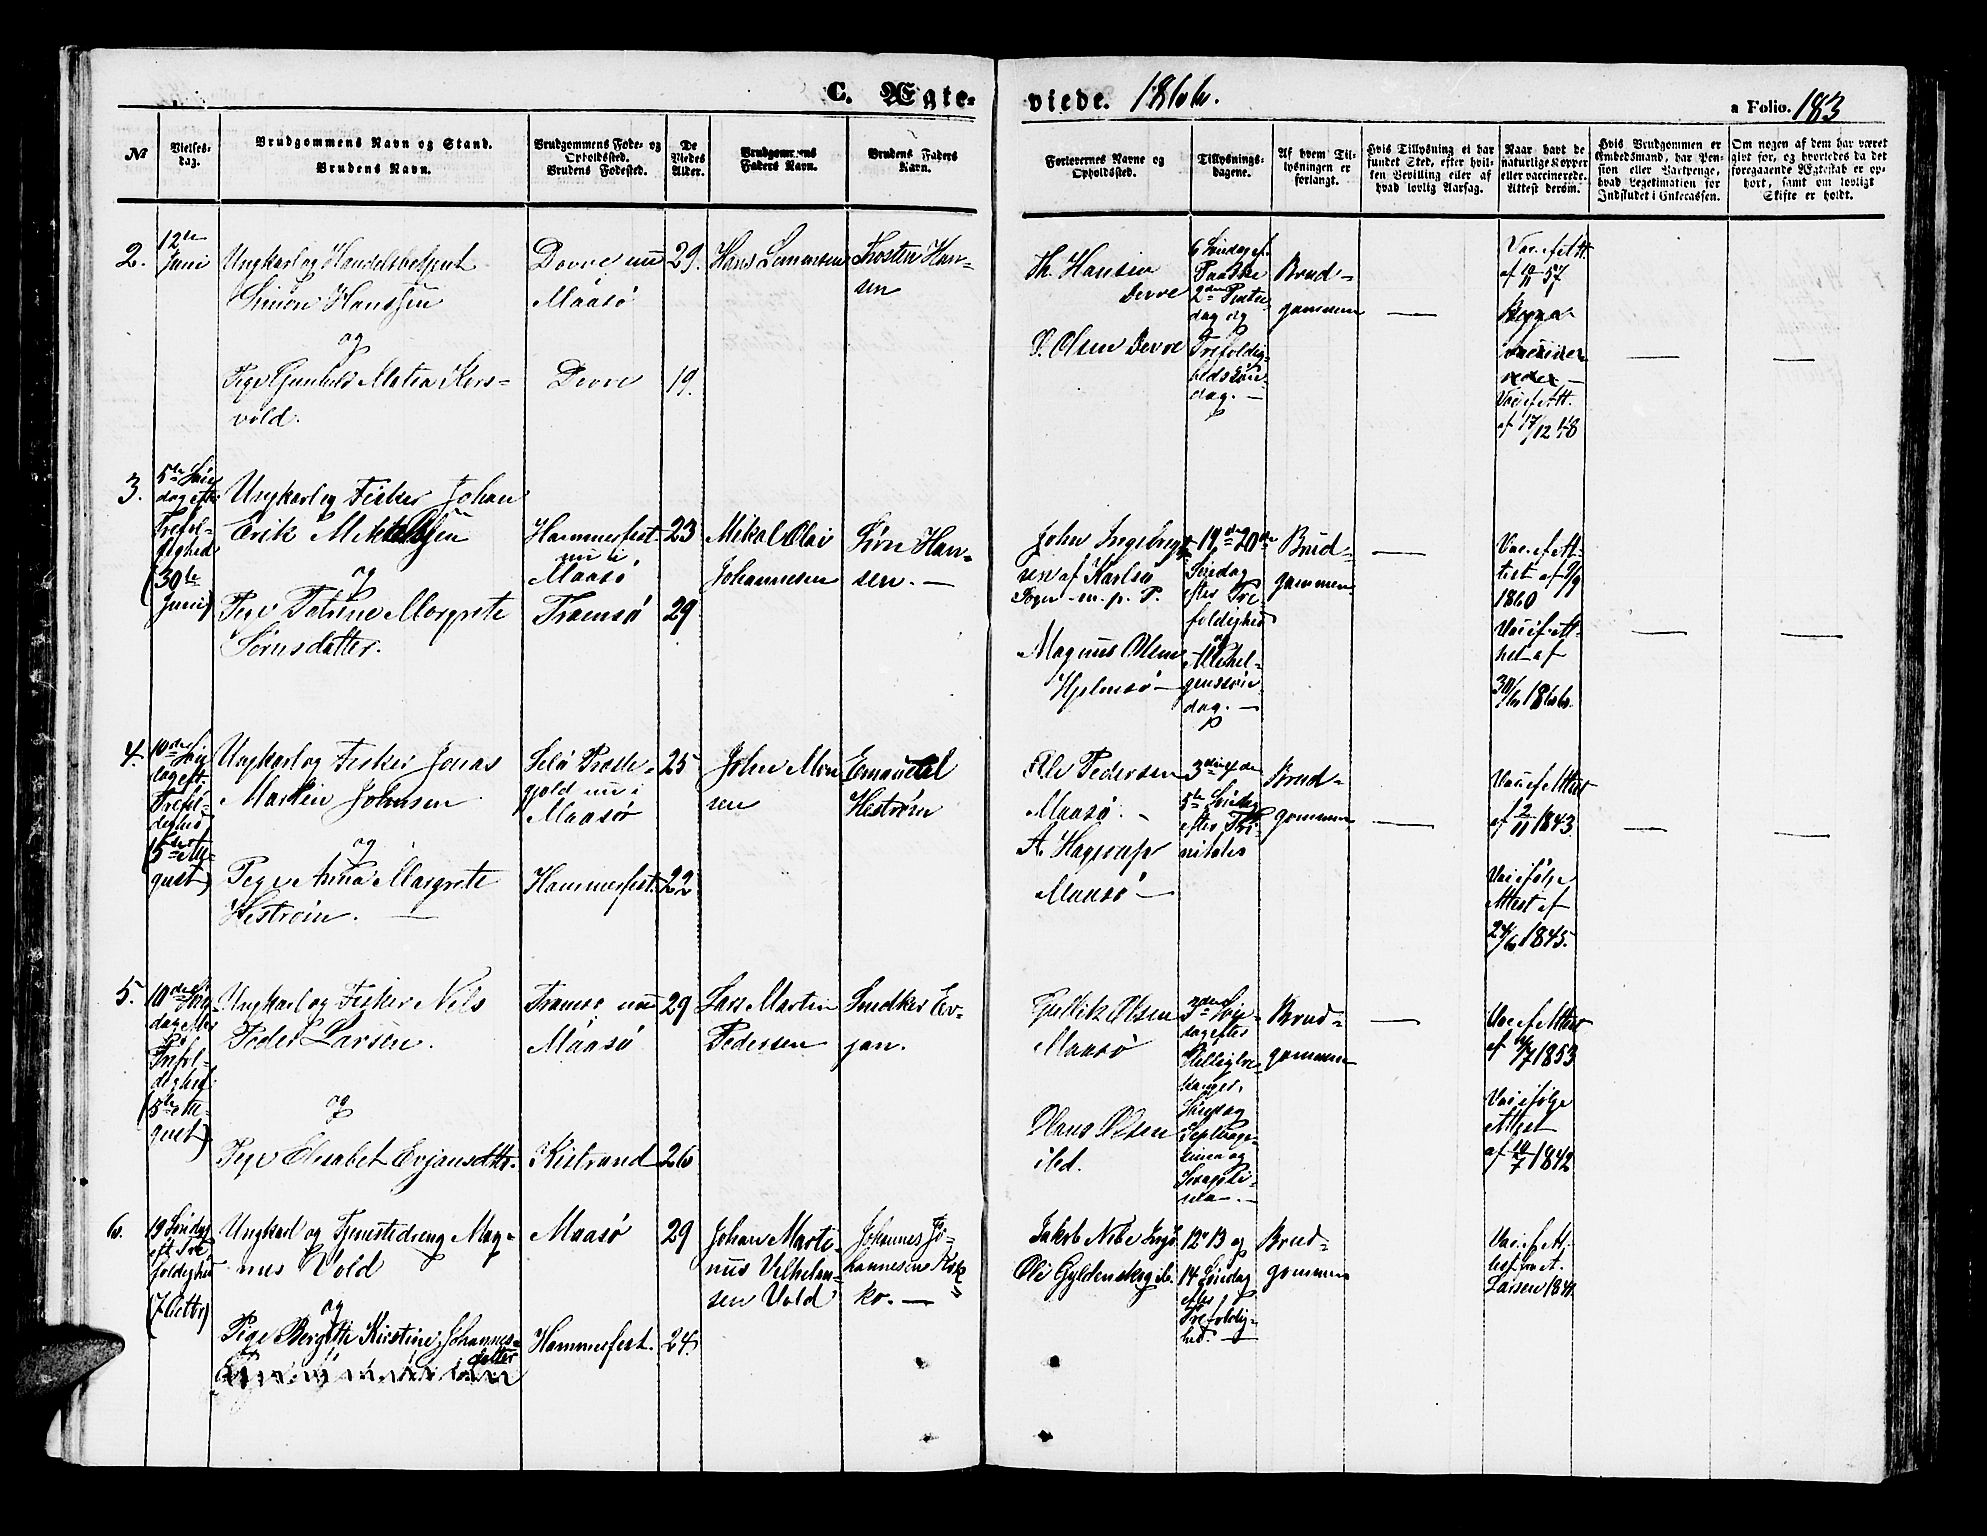 C. Ægte-
viede. 1866.
a Folio. 183
№
Vielses-
dag.
Brudgommens Navn og Stand.
Brudens Navn.
Brudgommens Føde- og
Opholdssted.
Brudens Fødested.
De
Viedes
Alder.
Brudgommens
Faders Navn.
Brudens Faders
Navn.
Forlovernes Navne og
Opholdssted.
Tillysnings-
dagene.
Af hvem Til-
lysningen er
forlangt.
Hvis Tillysning ei har
fundet Sted, efter hvil-
ken Bevilling eller af
hvad lovlig Aarsag.
Naar havt de
naturlige Kopper
eller vaccinerede.
Attest derom.
Hvis Brudgommen er
Embedsmand, har Pen-
sion eller Vartpenge,
hvad Legitimation for
Indskudet i Enkecassen.
Om nogen af dem har været
gift før, og hvorledes da det
foregaaende Ægteskab er op-
hørt, samt om lovligt
Skifte er holdt.
2.
12te
Juni
Ungkarl og Handelsbetjent
Simon Hanssen
og
Pige Gunhild Metea Kors-
vold.
Dovre nu
Maasö
Dovre
29.
19.
Hans
Thosten Han-
sen
Th. Hansen
Dovre
Olsen Dovre
6 Söndag ef.
Paaske
2den Pintse-
dag og
Trefoldig-
hedssön-
dag. —
Brud-
gommen
—
Vac. ef. Att.
af 57
Vac ef Att.
af 17/12 48
—
—
3.
5te Sön-
dag efter
Trefol-
dighed
(30te
Juni)
Ungkarl og Fisker Johan
Erik Mikkelsen
og
Pige Margrete
Sörnsdatter.
Hammerfest
nu i
Maasö
Tromsö
23
29
Mikal Olai
Johannesen
Sörn Han-
sen. —
John Ingebrigt-
sen af Karlsö
Magnus Olsen
Hjelmsö —
19de 20de
Söndag
efter Tre
foldighed
og
Allehel-
genssön-
dag. —
Brud-
gommen
—
Vac. ef At-
test af 9/9
1860
Vac. ef. At-
test af
30/6 1866.
—
—
4.
10de Sön
dag eft.
Trefol-
dighed
(5te Au-
gust)
Ungkarl og Fisker Jonas
Martin Johnsen
og
Pige Anna Margrete
Heström. —
Selö Præste-
gjeld nu i
Maasö
Hammerfest.
25
22
John Mon
sen
Emanuel
Heström
Ole Pedersen
Maasö. —
A. Hagerup
Maasö —
3die 4de
5te Söndag
efter Tri-
nitatis
Brud-
gommen
—
Vac ef Attest
af 12/11 1843.
Vac ifölge
Attest af
24/6 1845.
—
—
5.
10de Sön
dag efter
Trefol-
dighed
(5te Au-
gust)
Ungkarl og Fisker Nils
Peder Larsen.
og
Pige Elisabet Evjansdtr.
Tromsö nu
Maasö
Kistrand
29
26
Lars Martin
Pedersen
Smedker Ev-
jan.
Olsen
Maasö
Hans Olsen
ibd.
3die Sön-
dag efter
Helligtre-
konger,
Söndag
Septuage-
sima og
Sexagesi-
ma —
Brud-
gommen
—
Vac ef Attest
af /7 1853
Vac ifölge
Attest
af /7 1842
6.
19 Söndag
eft. Tre
foldighed
(7 Octbr)
Ungkarl og Tjenestedreng Mag-
nus Vold
og
Pige Bergitte Kirstine Johannes-
datter
Maasö
Hammerfest.
29
24.
Johan Marti-
nus Vilhelm-
sen Vold
Johannes Jo-
hannesens Kok
ko. —
Jakob Nibe
Ole Gyldenskog ib.
12. 13 og
14 Söndag
efter
Trefoldig-
hed. —
Brud-
gommen
Vac. ef Att.
Larsen 184